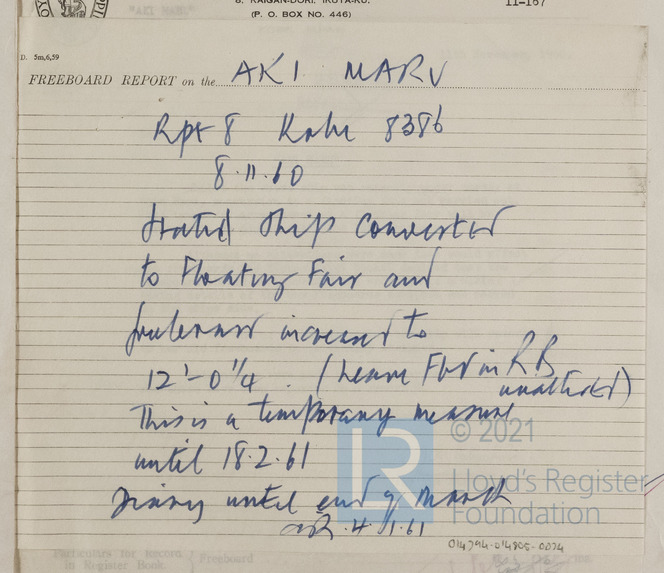 8, KAIGAN-DORI, IKUTA-KU.
(P. O. BOX NO. 446)
11-167
D. 5m,6,59
FREEBOARD REPORT on the AKI MARU
Rpt 8 Kobe 8386
8.11.60
stated ship converted
to Floating Fair and
freeboard increased to
12'-0 1/4 . (Leave Fbd in RB
unaltered)
This is a temporary measure
until 18.2.61
Diary until end of March
4.1.61
© 2021
LR
Lloyd's Register
Foundation
014794-014805-0074
Particulars for Record
in Register Book.
Freeboard